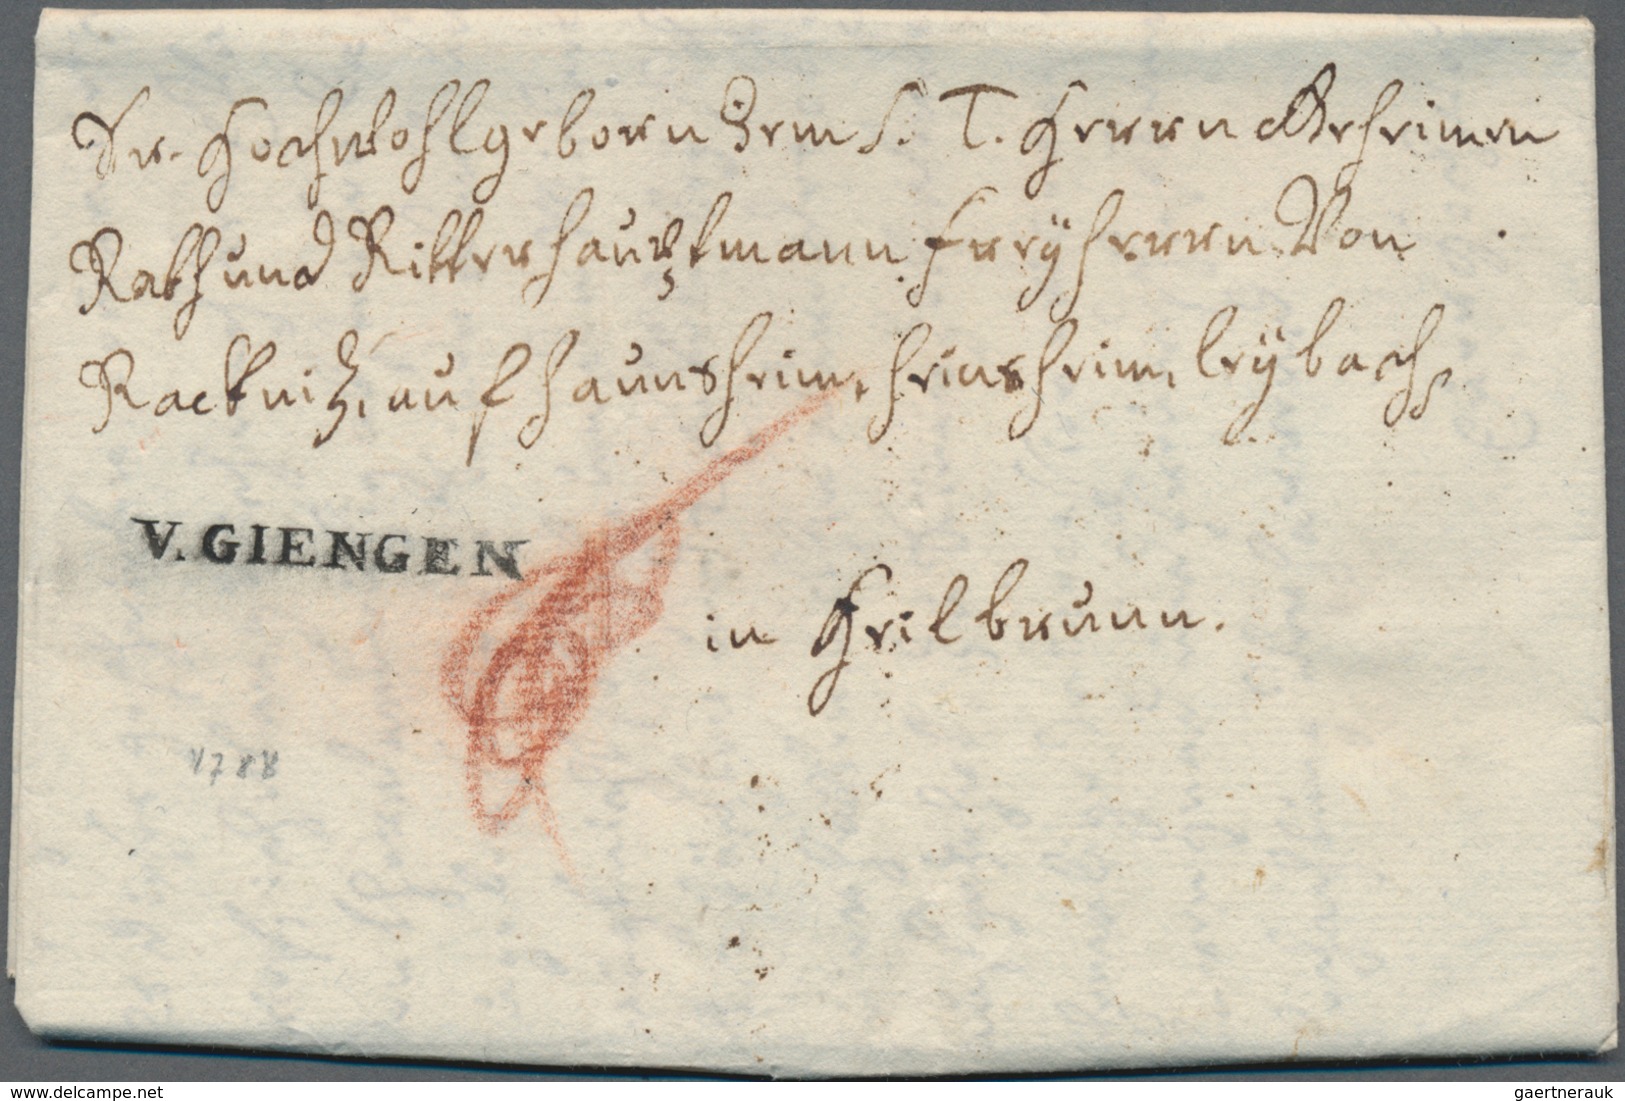 Sr. Hochwohlgeborn dem S. T. Herrn Geheimen
Rath und Ritterhauptmann Freÿherrn Von
Racknitz, auf Haunsheim, Heinsheim, Leÿbach,
V. GIENGEN
in Heilbrunn.
1788
www.delcampe.net
gaertnerauk